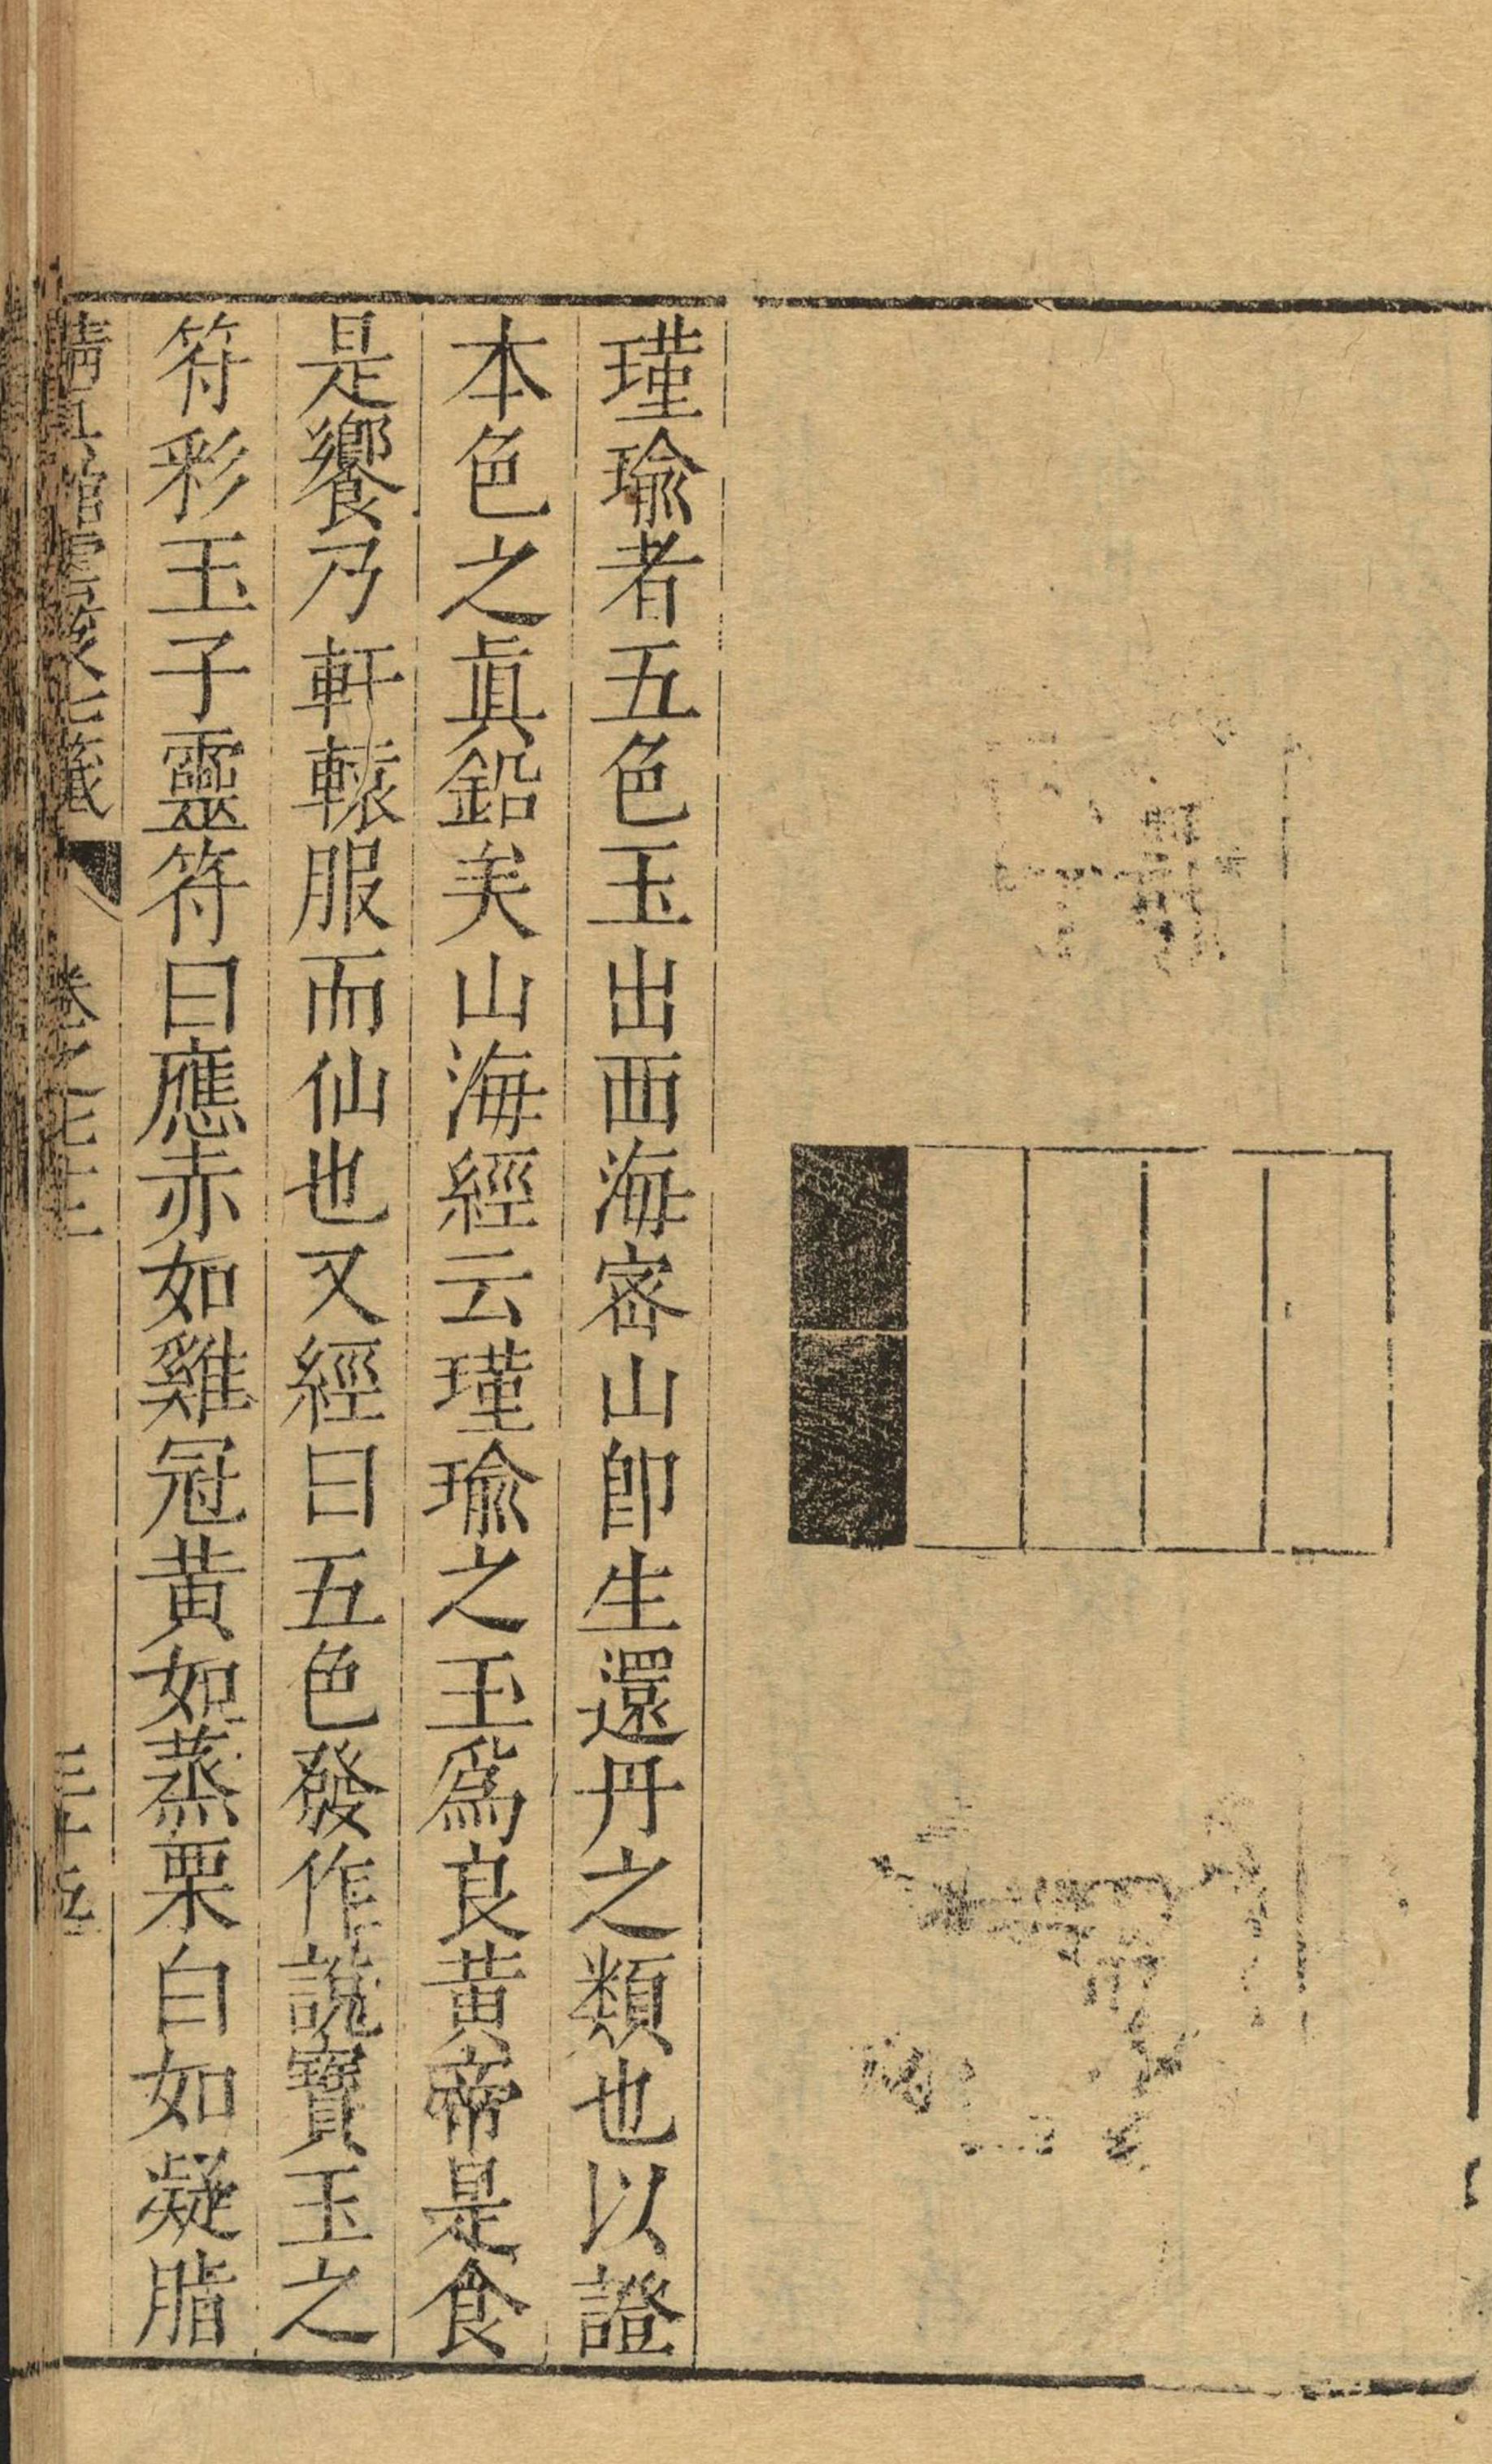 瑾瑜者五色玉出西海密山卽生還丹之類也以證
本色之眞鉛矣山海經云瑾瑜之玉爲良黃帝是食
是饗乃軒轅服而仙也又經曰五色發作說寶玉之
符彩玉子靈符曰應赤如雞冠黃如蒸栗白如凝脂
清真館雲笈七籤 卷之七十三 三十五